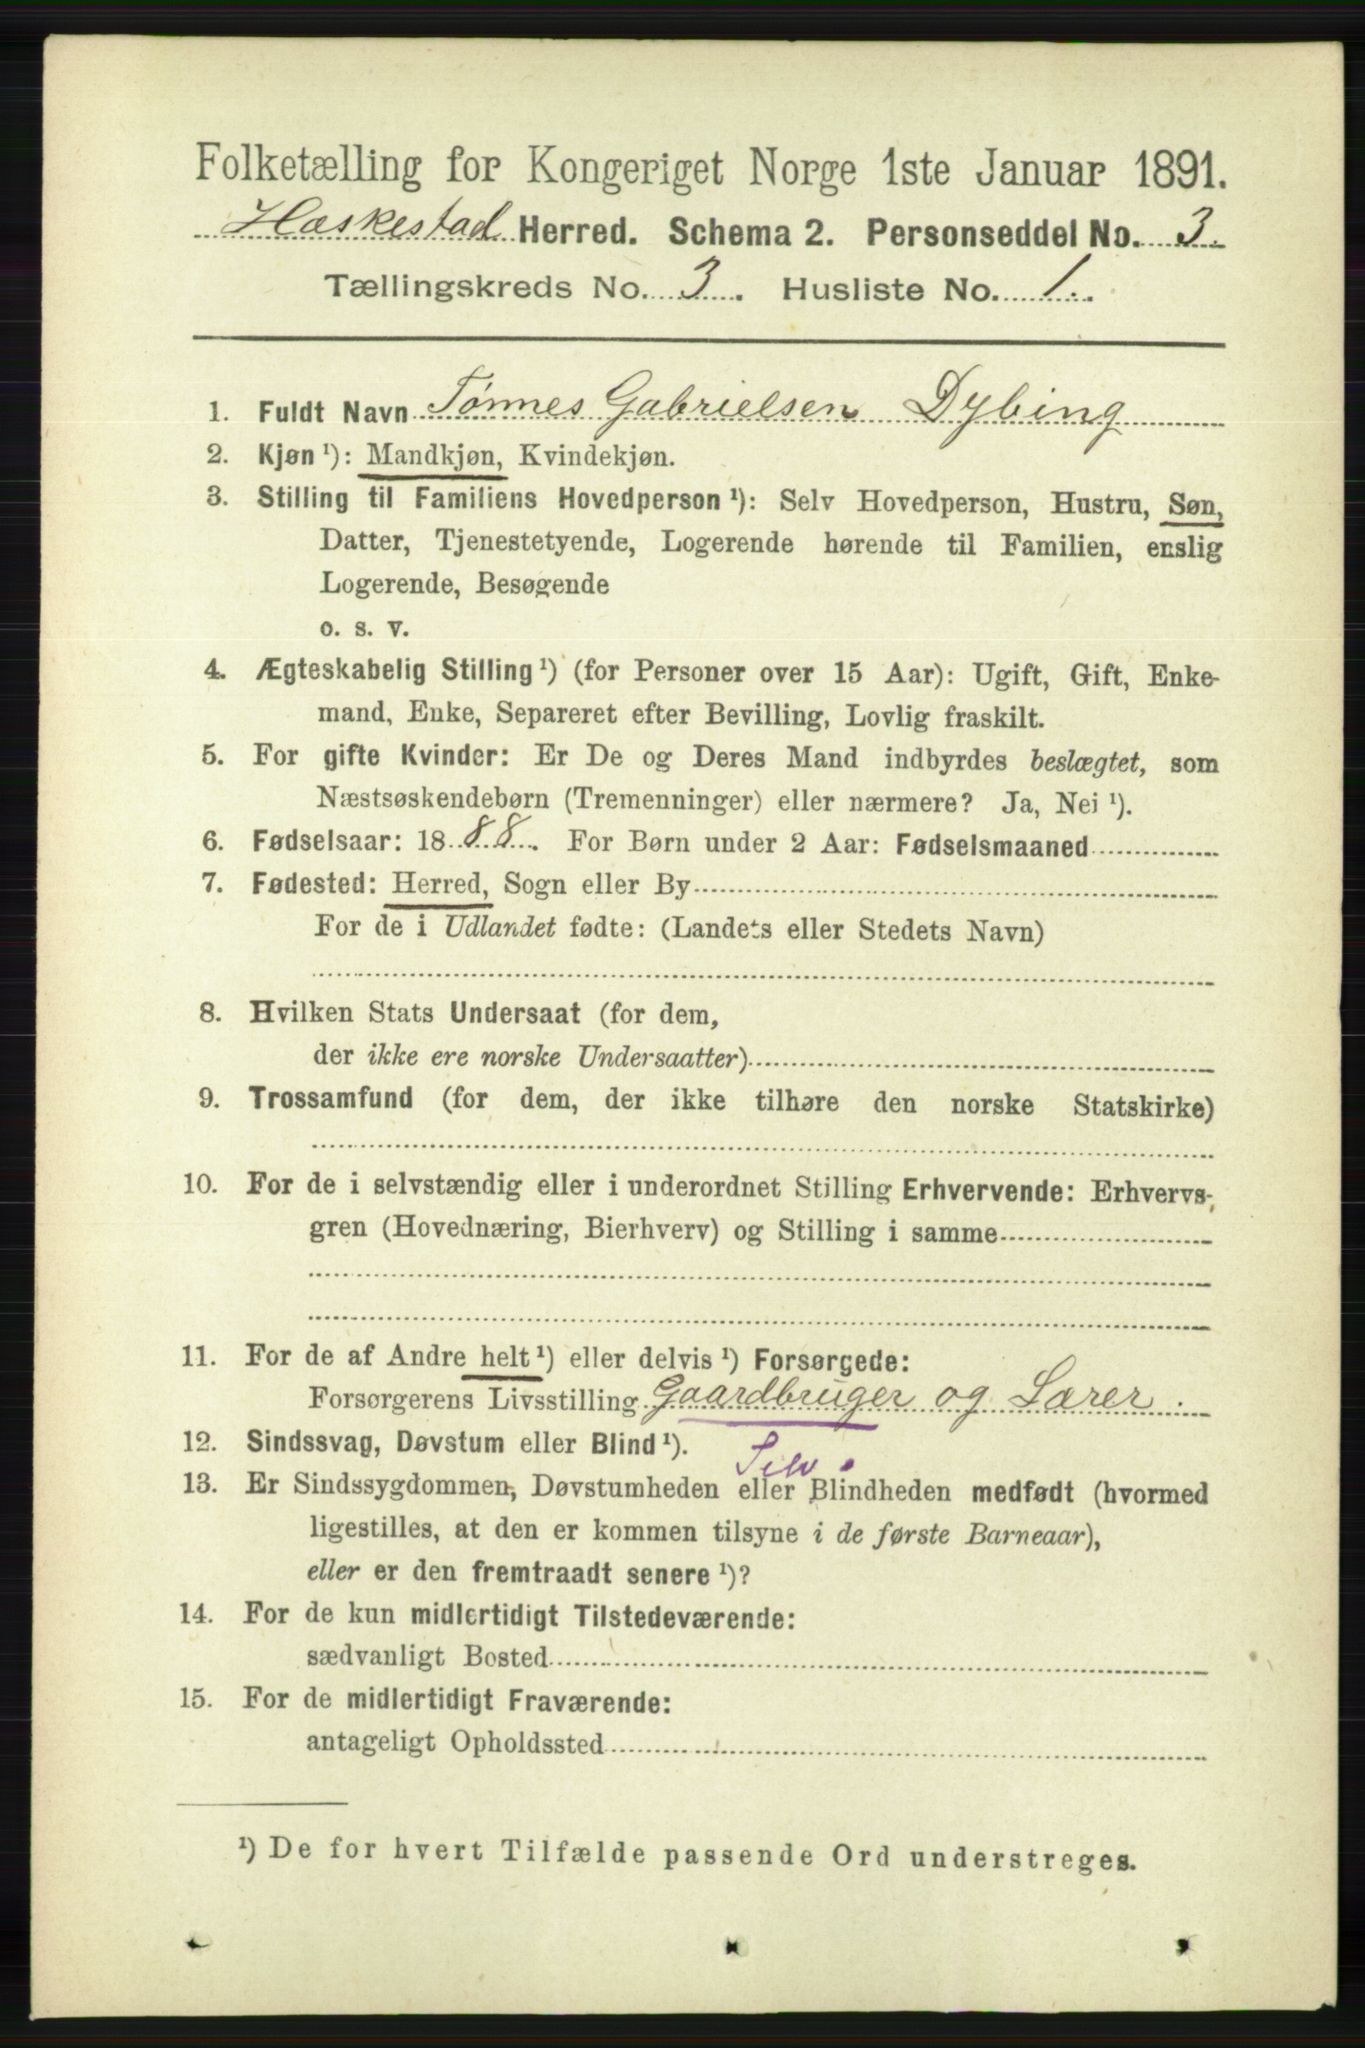 Folketælling for Kongeriget Norge 1ste Januar 1891.
Hæskestad Herred. Schema 2. Personseddel No. 3.
Tællingskreds No. 3. Husliste No. 1.
1. Fuldt Navn Tønnes Gabrielsen Dybing
2. Kjøn ¹): Mandkjøn, Kvindekjøn.
3. Stilling til Familiens Hovedperson ¹): Selv Hovedperson, Hustru, Søn,
Datter, Tjenestetyende, Logerende hørende til Familien, enslig
Logerende, Besøgende
o. s. v.
4. Ægteskabelig Stilling ¹) (for Personer over 15 Aar): Ugift, Gift, Enke-
mand, Enke, Separeret efter Bevilling, Lovlig fraskilt.
5. For gifte Kvinder: Er De og Deres Mand indbyrdes beslægtet, som
Næstsøskendebørn (Tremenninger) eller nærmere? Ja, Nei ¹).
6. Fødselsaar: 1888. For Børn under 2 Aar: Fødselsmaaned
7. Fødested: Herred, Sogn eller By
For de i Udlandet fødte: (Landets eller Stedets Navn)
8. Hvilken Stats Undersaat (for dem,
der ikke ere norske Undersaatter)
9. Trossamfund (for dem, der ikke tilhøre den norske Statskirke)
10. For de i selvstændig eller i underordnet Stilling Erhvervende: Erhvervs-
gren (Hovednæring, Bierhverv) og Stilling i samme
11. For de af Andre helt ¹) eller delvis ¹) Forsørgede:
Forsørgerens Livsstilling Gaardbruger og Lærer.
12. Sindssvag, Døvstum eller Blind ¹).
Selv.
13. Er Sindssygdommen, Døvstumheden eller Blindheden medfødt (hvormed
ligestilles, at den er kommen tilsyne i de første Barneaar),
eller er den fremtraadt senere ¹)?
14. For de kun midlertidigt Tilstedeværende:
sædvanligt Bosted
15. For de midlertidigt Fraværende:
antageligt Opholdssted
¹) De for hvert Tilfælde passende Ord understreges.